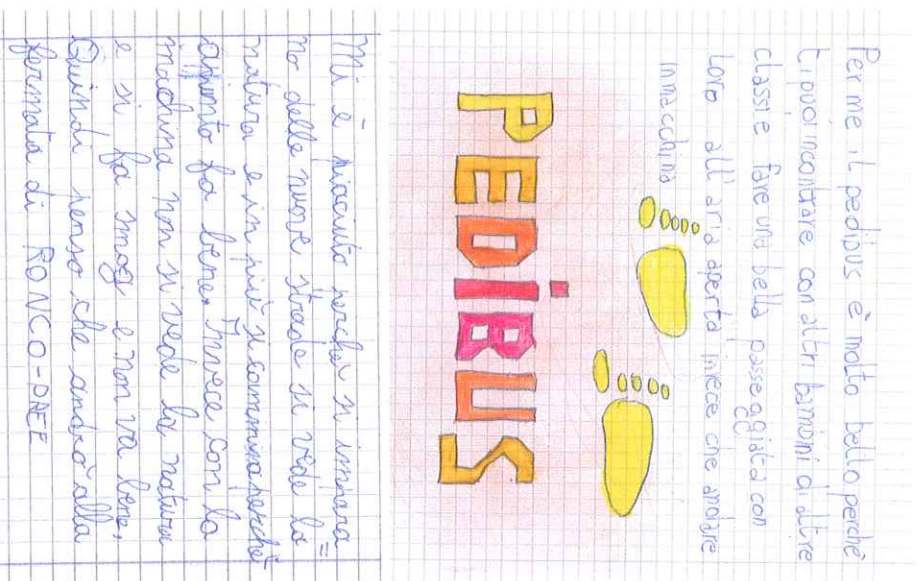 Per me il pedibus è molto bello perchè
ti puoi incontrare con altri bambini di altre
classi e fare una bella passeggiata con
loro all'aria aperta invece che andare
in macchina
PEDiBUS
Mi è piaciuto perché si impara=
no delle nuove strade si vede la
natura e in più si cammina perché
fa bene. Invece con la
machina non si vede la natura
e si fa smog e non va bene,
Quindi penso che andrò alla
fermata di RONCO-